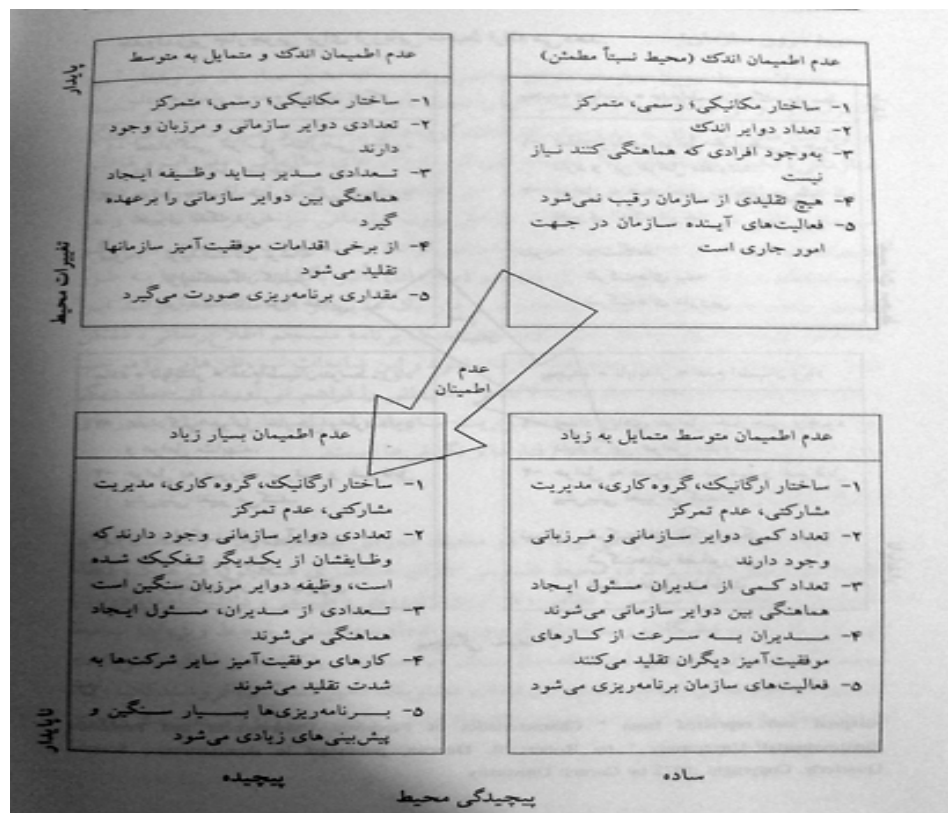 عدم اطمیمان اندک (محیط نسبتاً مطمئن)
۱- ساختار مکانیکی؛ رسمی، متمرکز
۲- تعداد دوایر اندک
۳- به‌وجود افرادی که هماهنگی کنند نیاز
نیست
۴- هیچ تقلیدی از سازمان رقیب نمی‌شود
۵- فعالیت‌های آینده سازمان در جهت
امور جاری است
عدم اطمیمان اندک و متمایل به متوسط
۱- ساختار مکانیکی؛ رسمی، متمرکز
۲- تعدادی دوایر سازمانی و مرزبان وجود
دارند
۳- تعدادی مدیر باید وظیفه ایجاد
هماهنگی بین دوایر سازمانی را برعهده
گیرد
۴- از برخی اقدامات موفقیت‌آمیز سازمانها
تقلید می‌شود
۵- مقداری برنامه‌ریزی صورت می‌گیرد
پایدار
تغییرات محیط
ناپایدار
عدم
اطمینان
عدم اطمیمان متوسط متمایل به زیاد
۱- ساختار ارگانیک، گروه کاری، مدیریت
مشارکتی، عدم تمرکز
۲- تعداد کمی دوایر سازمانی و مرزبانی
وجود دارند
۳- تعداد کمی از مدیران مسئول ایجاد
هماهنگی بین دوایر سازمانی می‌شوند
۴- مدیران به سرعت از کارهای
موفقیت‌آمیز دیگران تقلید می‌کنند
۵- فعالیت‌های سازمان برنامه‌ریزی می‌شود
عدم اطمیمان بسیار زیاد
۱- ساختار ارگانیک، گروه کاری، مدیریت
مشارکتی، عدم تمرکز
۲- تعدادی دوایر سازمانی وجود دارند که
وظایفشان از یکدیگر تفکیک شده
است، وظیفه دوایر مرزبان سنگین است
۳- تعدادی از مدیران، مسئول ایجاد
هماهنگی می‌شوند
۴- کارهای موفقیت‌آمیز سایر شرکت‌ها به
شدت تقلید می‌شوند
۵- برنامه‌ریزی‌ها بسیار سنگین و
پیش‌بینی‌های زیادی می‌شود
ساده
پیچیده
پیچیدگی محیط